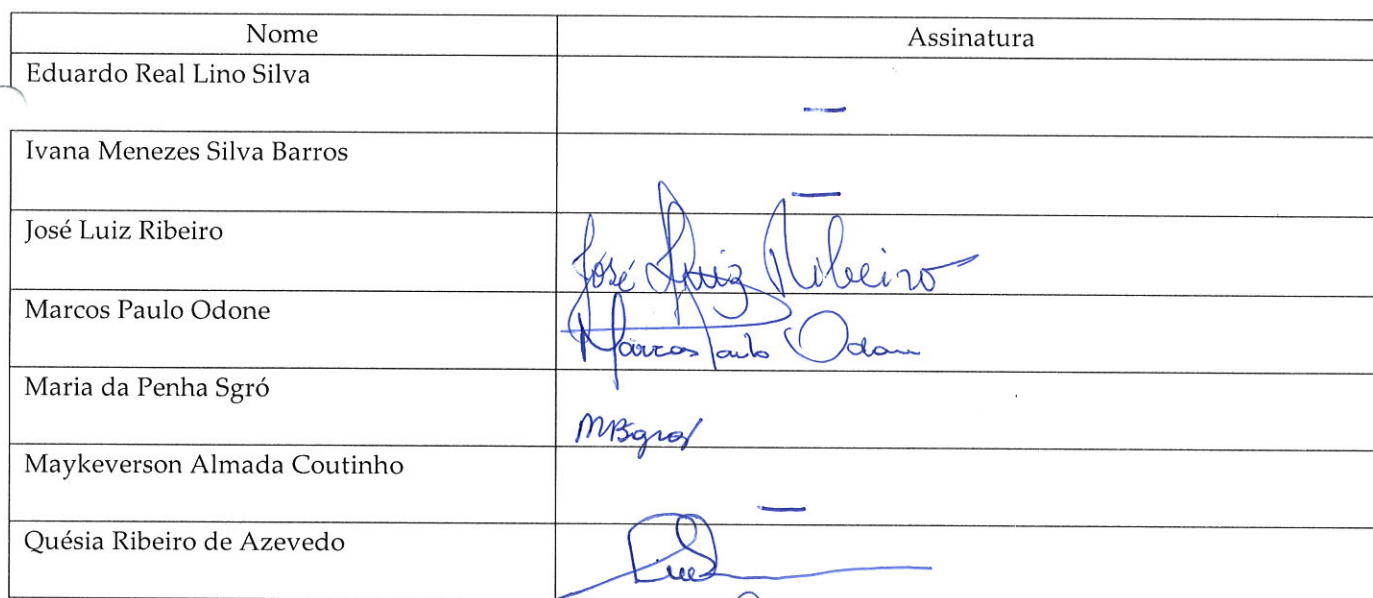 Nome Assinatura
Eduardo Real Lino Silva —
Ivana Menezes Silva Barros —
José Luiz Ribeiro José Luiz Ribeiro
Marcos Paulo Odone Marcos Paulo Odone
Maria da Penha Sgró
Maykeverson Almada Coutinho —
Quésia Ribeiro de Azevedo